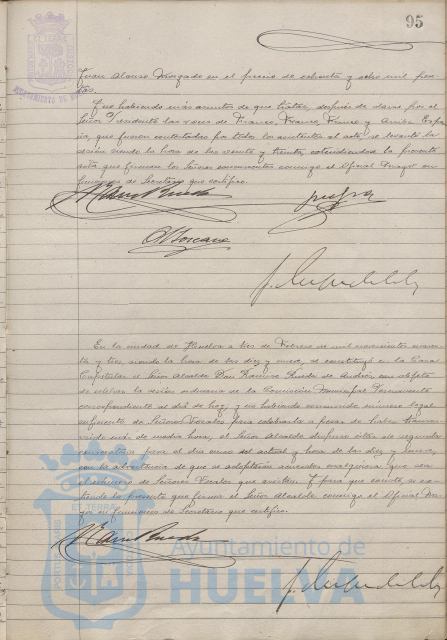 95
AYUNTAMIENTO DE HUELVA
Juan Alonso Morgado en el precio de ochenta y ocho mil pese-
tas.
Y no habiendo más asuntos de que tratar, después de darse por el
Señor Presidente las voces de Franco, Franco, Franco y Arriba Espa-
ña, que fueron contestadas por todos los asistentes al acto, se levantó la
sesión siendo la hora de las veinte y treinta, extendiéndose la presente
acta que firman los Señores concurrentes conmigo el Oficial Mayor en
funciones de Secretario que certifico.
En la ciudad de Huelva a tres de Febrero de mil novecientos cuaren-
ta y tres, siendo la hora de las diez y nueve, se constituyó en la Casa
Capitular el Señor Alcalde Don Ramiro Rueda de Andrés con objeto
de celebrar la sesión ordinaria de la Comisión Municipal Permanente
correspondiente al día de hoy, y no habiendo concurrido número legal
suficiente de Señores Vocales para celebrarla a pesar de haber transcu-
rrido más de media hora, el Señor Alcalde dispuso citar de segunda
convocatoria para el día cinco del actual y hora de las diez y nueve,
con la advertencia de que se adoptarán acuerdos cualquiera que sea
el número de Señores Vocales que asistan. Y para que conste, se ex-
tiende la presente que firma el Señor Alcalde conmigo el Oficial Ma-
yor en funciones de Secretario que certifico.
Ayuntamiento de
HUELVA